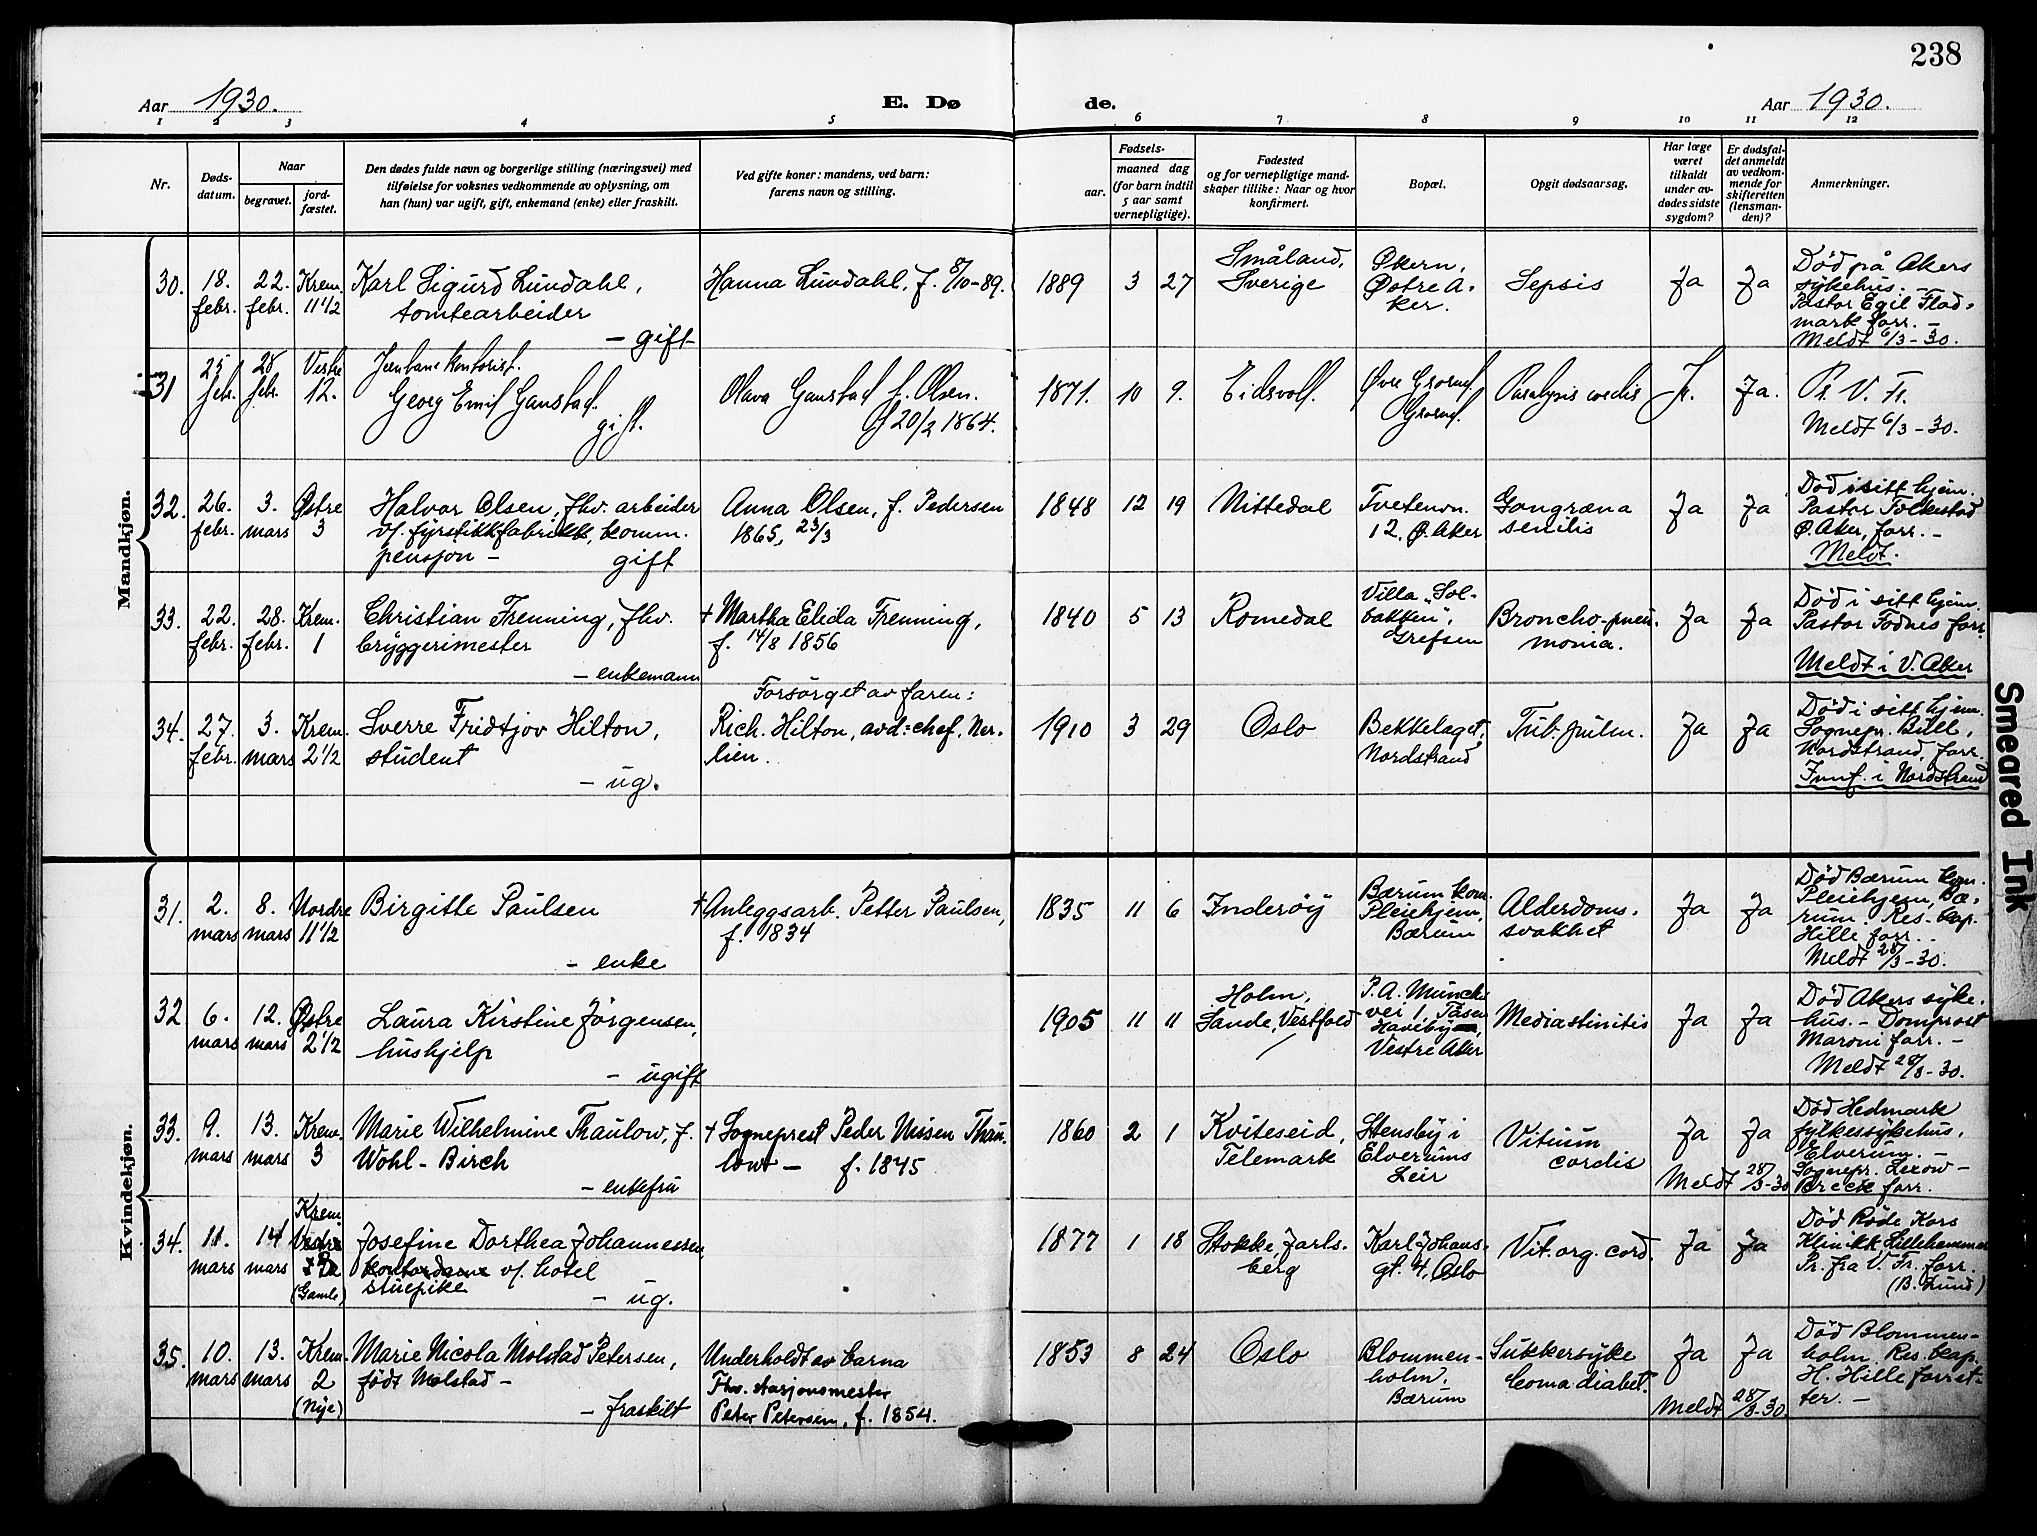 238
Aar 1930.
E. Dø
de.
Aar 1930.
1 2 3 4 5 6 7 8 9 10 11 12
Nr.
Døds-
datum.
Naar
begravet.
jord-
fæstet.
Den dødes fulde navn og borgerlige stilling (næringsvei) med
tilføielse for voksnes vedkommende av oplysning, om
han (hun) var ugift, gift, enkemand (enke) eller fraskilt.
Ved gifte koner: mandens, ved barn:
farens navn og stilling.
Fødsels-
aar.
maaned dag
(for barn indtil
5 aar samt
vernepligtige).
Fødested
og for vernepligtige mand-
skaper tillike: Naar og hvor
konfirmert.
Bopæl.
Opgit dødsaarsag.
Har læge
været
tilkaldt
under av-
dødes sidste
sygdom?
Er dødsfal-
det anmeldt
av vedkom-
mende for
skifteretten
(lensman-
den)?
Anmerkninger.
Mandkjøn.
30.
18.
febr.
22.
febr.
Krem.
11 1/2
Karl Sigurd Lundahl,
tomtearbeider
- gift
Hanna Lundahl, f. 8/10-89.
1889
3
27
Småland,
Sverige
Økern,
Østre A-
ker.
Sepsis
Ja
Ja
Død på Akers
sykehus. -
Pastor Egil Flad-
mark forr. -
Meldt 6/3-30.
31
25
febr.
28
febr.
Vestre
12.
Jernbanekontorist.
Georg Emil Ganstad.
gift.
Olava Ganstad f. Olsen.
f 20/2 1864.
1871.
10
9.
Eidsvoll.
Øvre Grorud,
Grorud.
Paralysis cordis
Ja.
Ja.
Pr. V. Fr.
Meldt 6/3-30.
32.
26.
febr.
3.
mars
Østre
3
Halvor Olsen, fhv. arbeider
v/ fyrstikkfabrikk, komm.
pensjon -
gift
Anna Olsen, f. Pedersen
1865, 23/3
1848
12
19
Nittedal
Tvetenvn.
12, Ø. Aker
Gangræna
senilis
Ja
Ja
Død i sitt hjem.
Pastor Folkestad
Ø. Aker, forr. -
Meldt.
33.
22.
febr.
28.
febr.
Krem.
1
Christian Frenning, fhv.
bryggerimester
- enkemann
+ Martha Elida Frenning,
f. 14/8 1856
1840
5
13
Romedal
Villa "Sol-
bakken",
Grefsen
Broncho-pneu-
monia.
Ja
Ja
Død i sitt hjem.
Pastor Fodnes forr.
Meldt i V. Aker
34.
27.
febr.
3.
mars
Krem.
2 1/2
Sverre Fridtjov Hilton,
student
- ug.
Forsørget av faren:
Rich. Hilton, avd=chef, Ner-
lien.
1910
3
29
Oslo
Bekkelaget,
Nordstrand
Tub. pulm.
Ja
Ja
Død i sitt hjem.
Sognepr. Bull,
Nordstrand, forr.
Innf. i Nordstrand
Kvindekjøn.
31.
2.
mars
8.
mars
Nordre
11 1/2
Birgitte Paulsen
- enke
+ Anleggsarb. Petter Paulsen,
f. 1834
1835
11
6
Inderøy
Bærum kom.
Pleiehjem,
Bærum
Alderdoms-
svakhet
Ja
Ja
Død Bærum kom.
Pleiehjem, Bæ-
rum. Res. kap.
Hille forr. -
Meldt 28/3-30.
32
6.
mars
12.
mars
Østre
2 1/2
Laura Kirstine Jørgensen,
hushjelp
- ugift
1905
11
11
Holm,
Sande, Vestfold
P. A. Munchs
vei 1, Tåsen
Haveby,
Vestre Aker
Mediastinitis
Ja
Ja
Død Akers syke-
hus. - Domprost
Maroni forr. -
Meldt 28/3-30.
33.
9.
mars
13.
mars
Krem.
3
Marie Wilhelmine Thaulow, f.
Wohl-Birch
- enkefru
+ Sogneprest Peder Nisen Thau-
low - f. 1845
1860
2
1
Kviteseid,
Telemark
Stensby i
Elverums
Leir
Vitium
cordis
Ja
Ja
Meldt 28/3-30
Død Hedmark
fylkessykehus,
Elverum. -
Sognepr. Lexow-
forr.
34.
11.
mars
14
mars
Krem
Vestre
(Gamle)
Josefine Dorthea Johannessen
kontordame v/ hotel
stuepike
- ug.
1877
1
18
Stokke, Jarls-
berg
Karl Johans-
gt. 4, Oslo
Vit. org. cord.
Ja
Ja
Død Røde Kors
Klinikk Lillehammer
Pr. fra V. Fr. forr.
(B. Lund)
35.
10.
mars
13.
mars
Krem.
2
(Nye)
Marie Nicola Molstad Petersen,
født Molstad -
- fraskilt
Underholdt av barna
Fhv. stasjonsmester
Peter Petersen, f. 1854.
1853
8
24
Oslo
Blommen-
holm,
Bærum
Sukkersyke
Coma diabet.
Ja
Ja
Meldt 28/3-30.
Død Blommen-
holm. Res. kap.
H. Hille forret-
ter. -
Smeared Ink